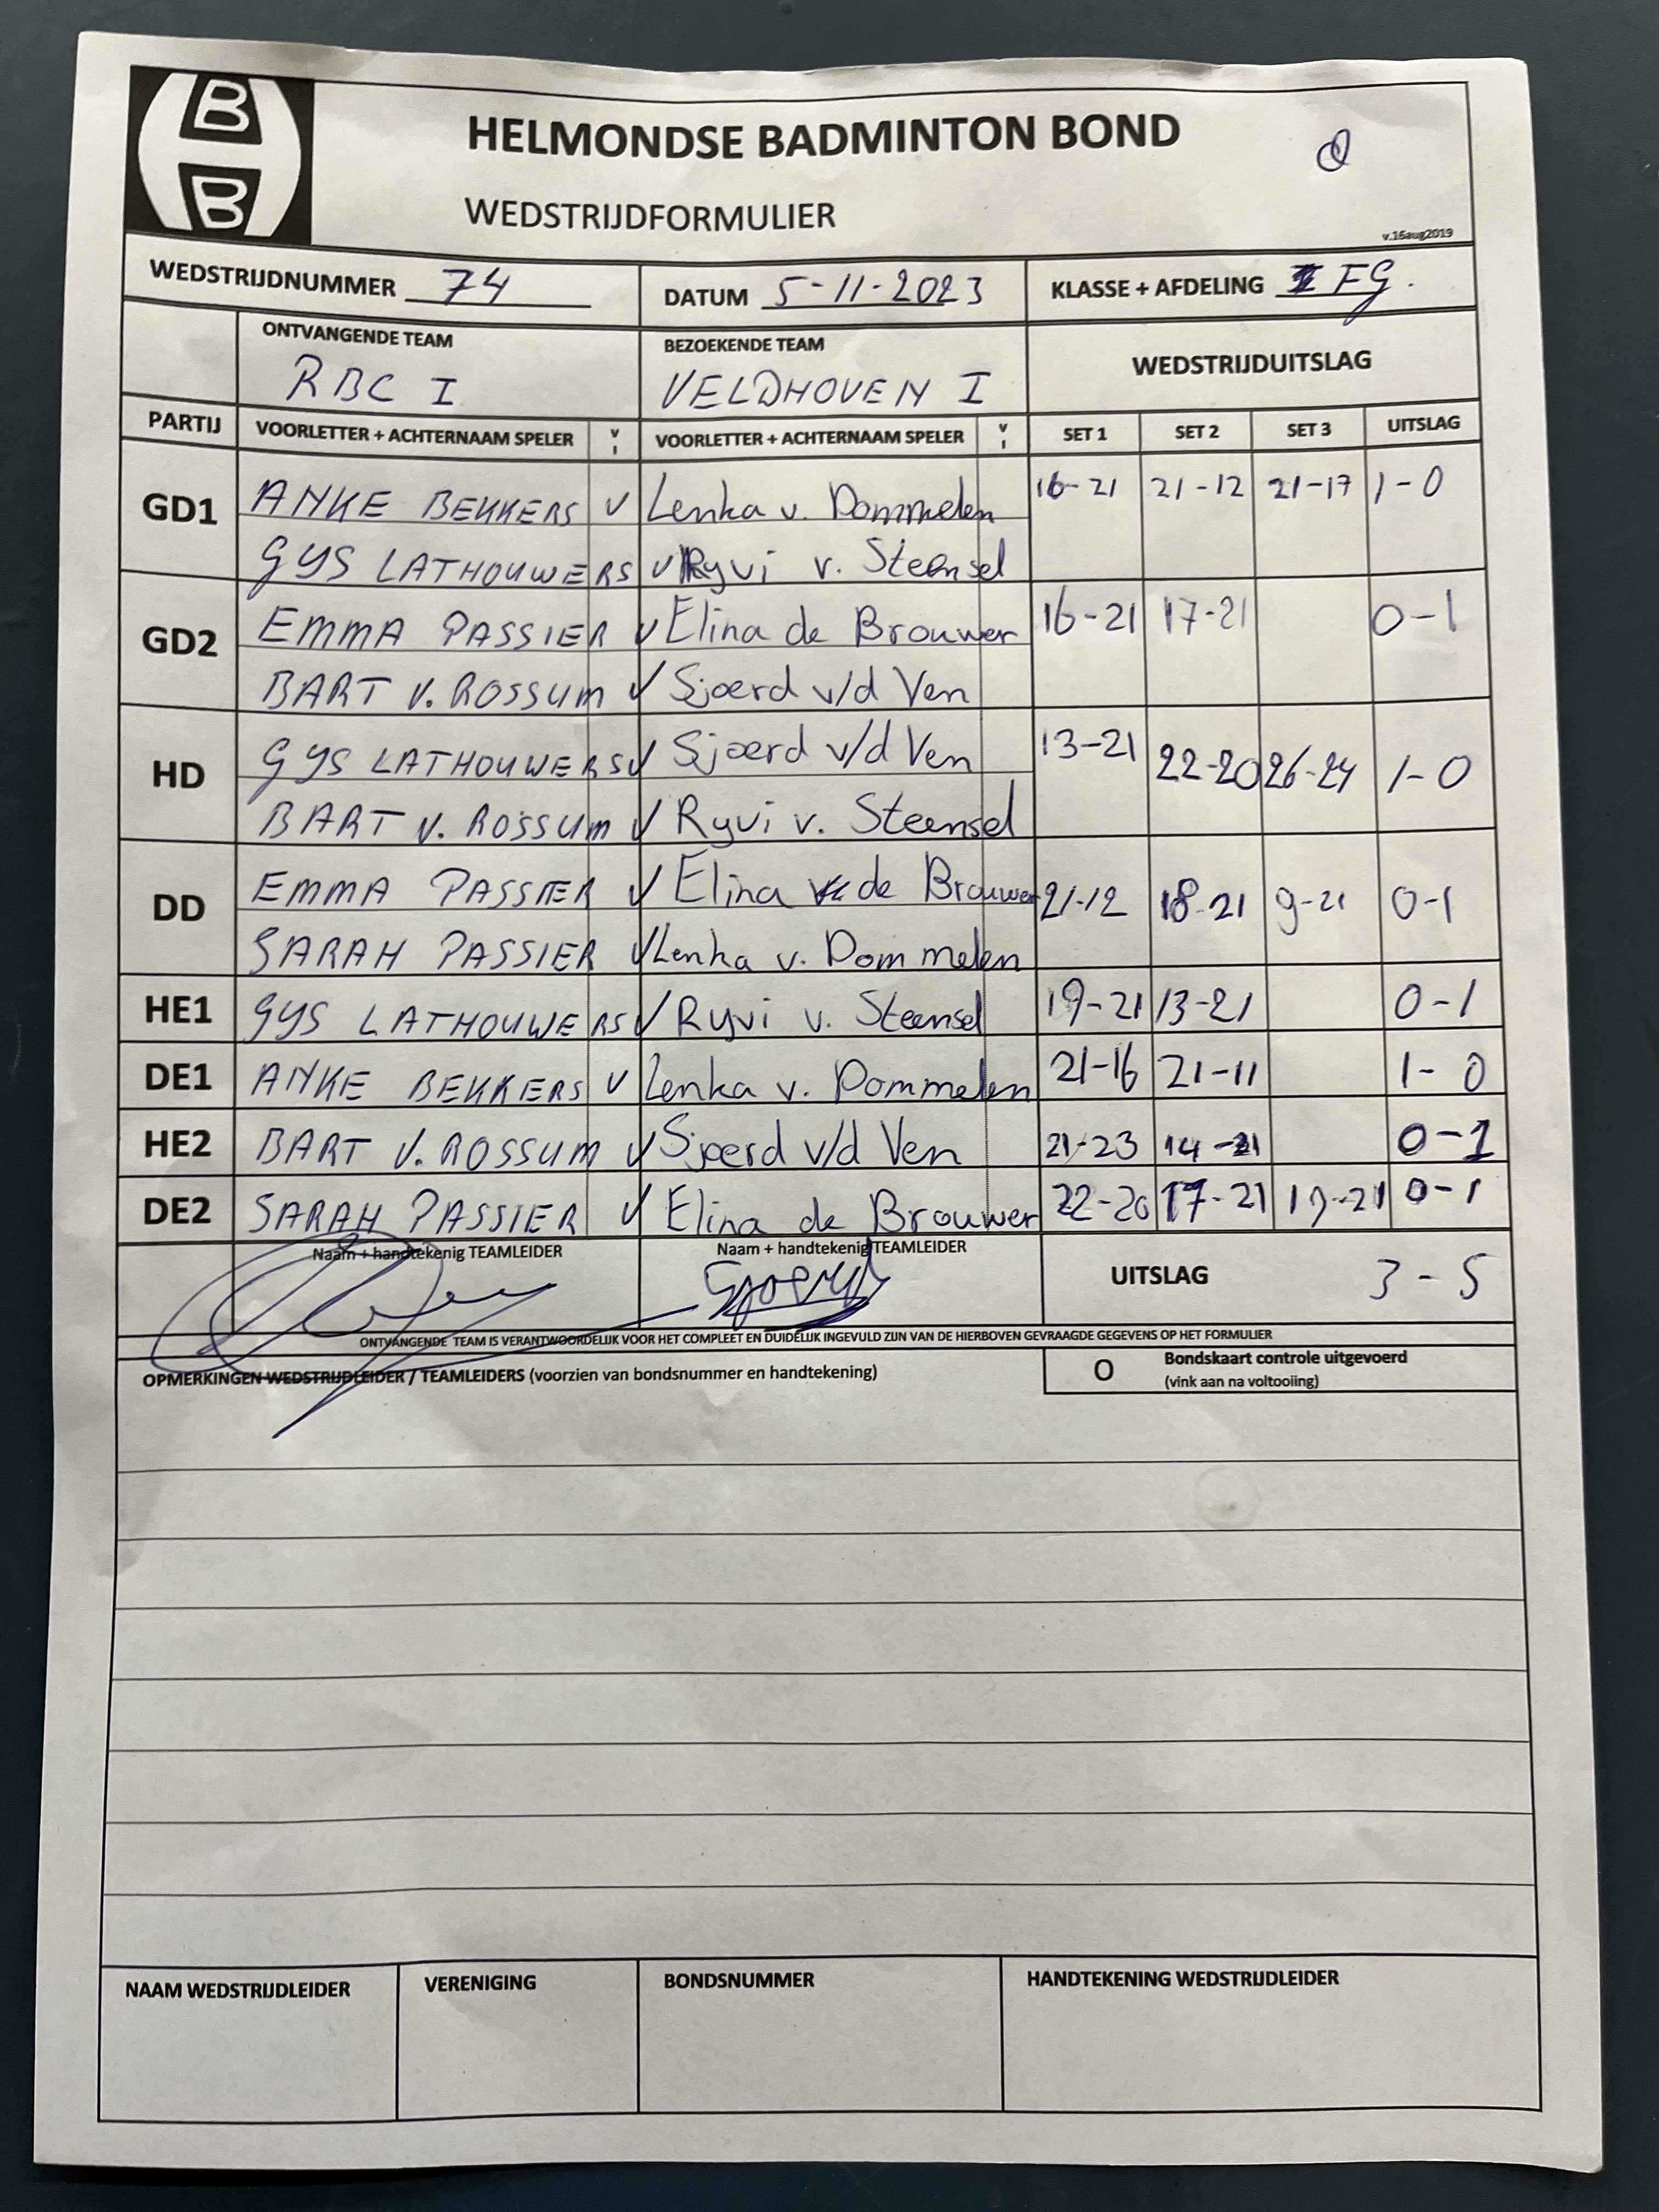 B
B
HELMONDSE BADMINTON BOND
WEDSTRIJDFORMULIER
v.16aug2019
WEDSTRIJDNUMMER 74 DATUM 5-11-2023 KLASSE + AFDELING FG.
ONTVANGENDE TEAM BEZOEKENDE TEAM WEDSTRIJDUITSLAG
RBC I VELDHOVEN I
PARTIJ VOORLETTER + ACHTERNAAM SPELER V I VOORLETTER + ACHTERNAAM SPELER V I SET 1 SET 2 SET 3 UITSLAG
GD1 ANKE BEKKERS V Lenka v. Dommelen 16-21 21-12 21-17 1-0
GYS LATHOUWERS V Ryvi v. Steensel
GD2 EMMA PASSIER V Elina de Brouwer 16-21 17-21 0-1
BART V. ROSSUM V Sjoerd v/d Ven
HD GYS LATHOUWERS V Sjoerd v/d Ven 13-21 22-20 26-24 1-0
BART V. ROSSUM V Ryvi v. Steensel
DD EMMA PASSIER V Elina de Brouwer 21-12 18-21 9-21 0-1
SARAH PASSIER V Lenka v. Dommelen
HE1 GYS LATHOUWERS V Ryvi v. Steensel 19-21 13-21 0-1
DE1 ANKE BEKKERS V Lenka v. Dommelen 21-16 21-11 1-0
HE2 BART V. ROSSUM V Sjoerd v/d Ven 21-23 14-21 0-1
DE2 SARAH PASSIER V Elina de Brouwer 22-20 17-21 19-21 0-1
Naam + handtekenig TEAMLEIDER Naam + handtekenig TEAMLEIDER
Sjoerd UITSLAG 3-5
ONTVANGENDE TEAM IS VERANTWOORDELIJK VOOR HET COMPLEET EN DUIDELIJK INGEVULD ZIJN VAN DE HIERBOVEN GEVRAAGDE GEGEVENS OP HET FORMULIER
OPMERKINGEN WEDSTRIJDLEIDER / TEAMLEIDERS (voorzien van bondsnummer en handtekening) O Bondskaart controle uitgevoerd
(vink aan na voltooiing)
NAAM WEDSTRIJDLEIDER VERENIGING BONDSNUMMER HANDTEKENING WEDSTRIJDLEIDER